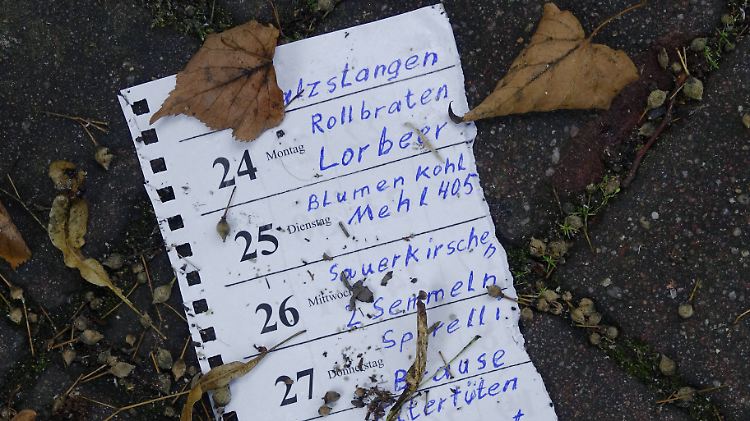 lzstangen
Rollbraten
24 Montag Lorbeer
Blumenkohl
25 Dienstag Mehl 405
Sauerkirschen
26 Mittwoch 2 Semmeln
Spirelli
27 Donnerstag Brause
tertüten